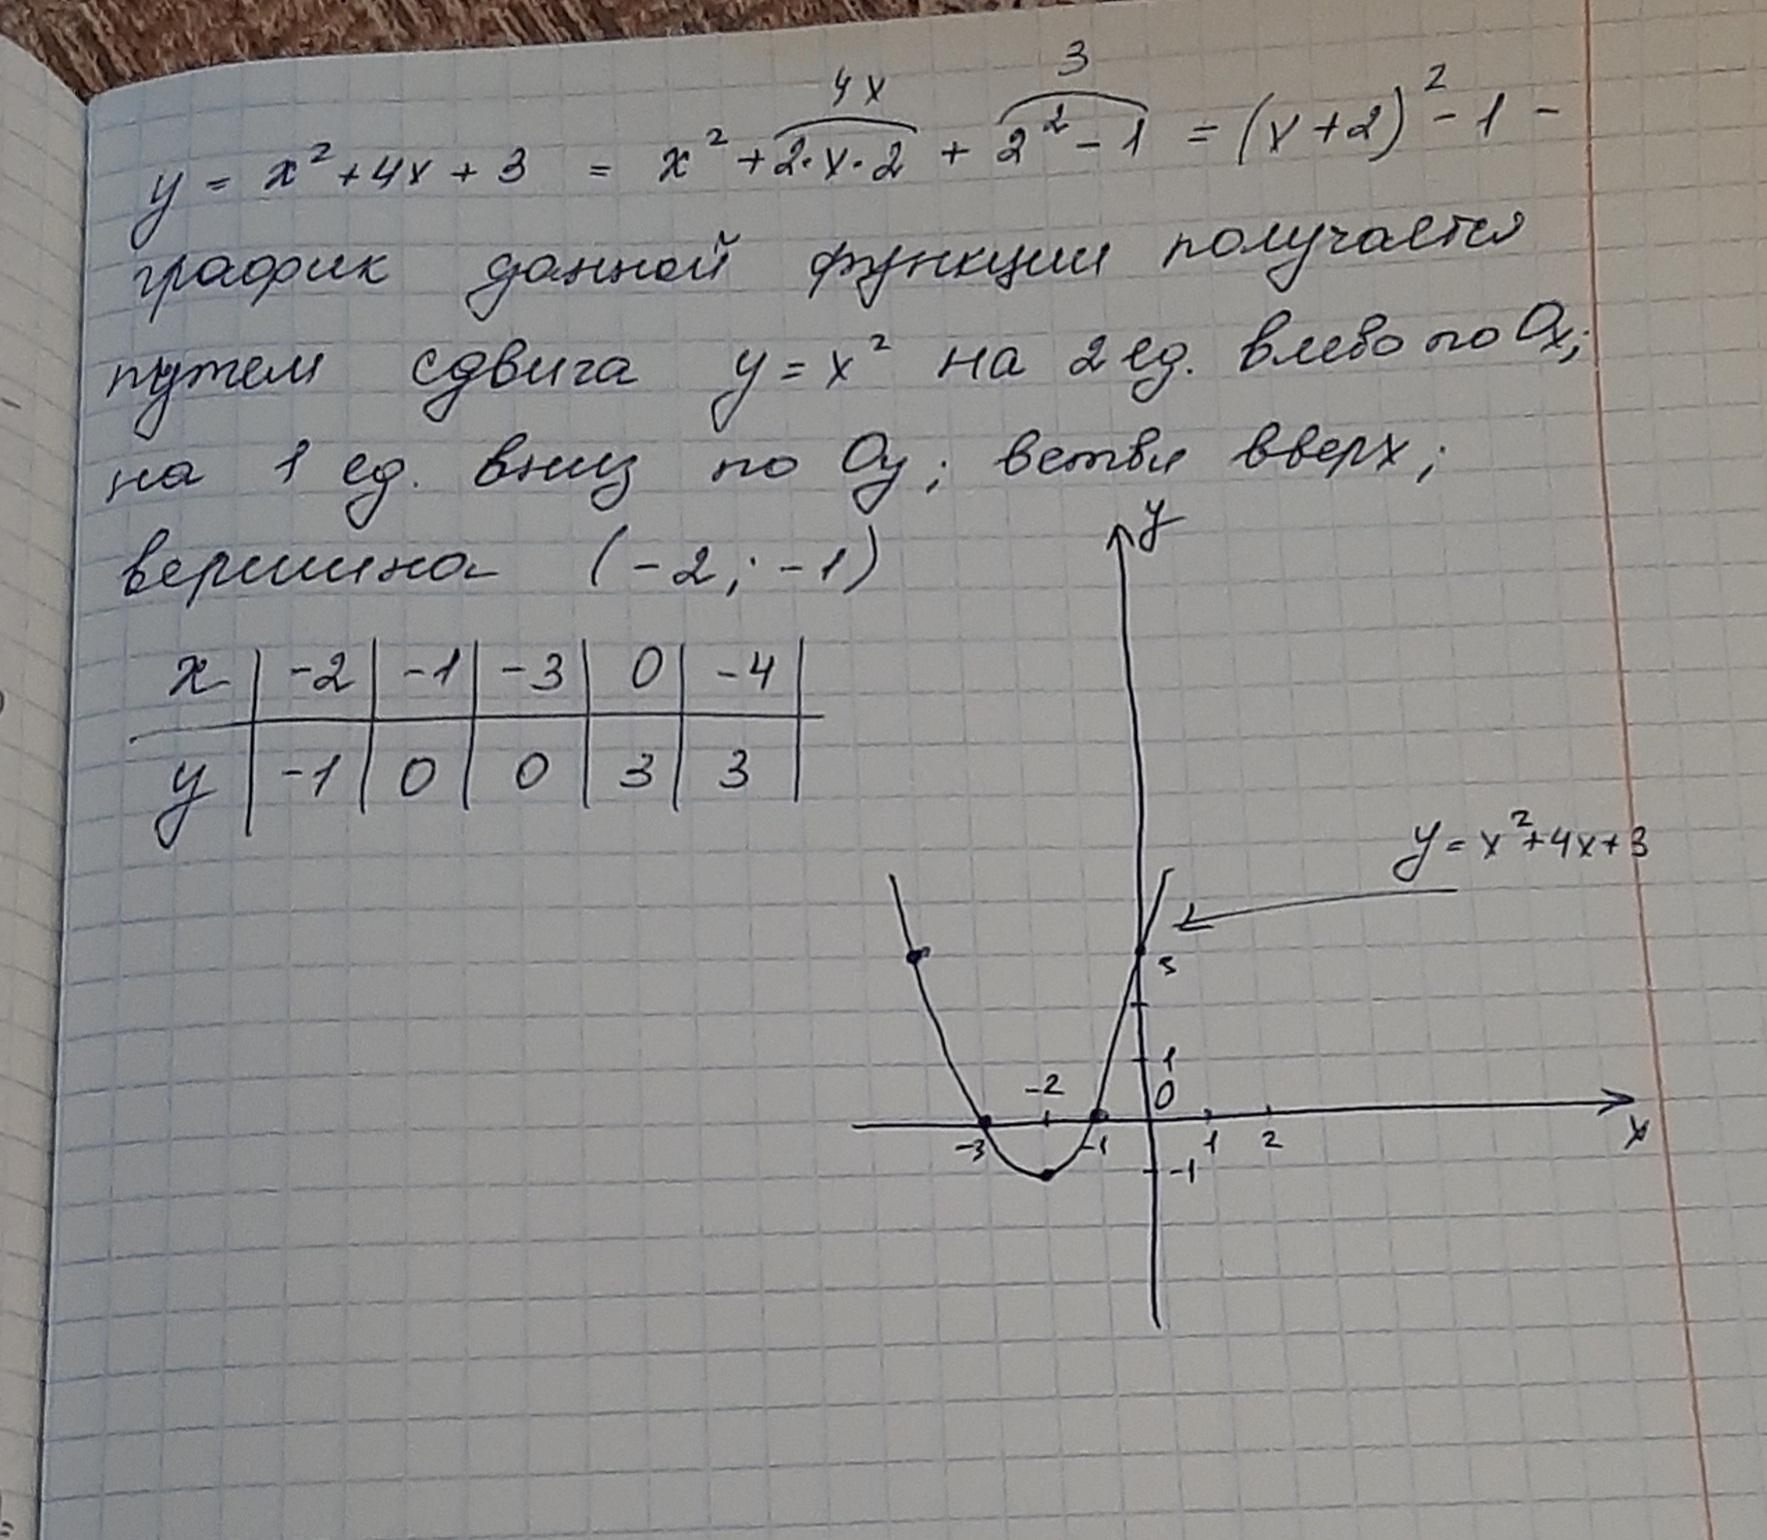 4x 3
y = x² + 4x + 3 = x² + 2·x·2 + 2² - 1 = (x + 2)² - 1 -
график данной функции получается
путем сдвига y = x² на 2 ед. влево по Ox;
на 1 ед. вниз по Oy; ветви вверх;
вершина (-2; -1)
x | -2 | -1 | -3 | 0 | -4 |
y | -1 | 0 | 0 | 3 | 3 |
y
y = x² + 4x + 3
3
1
-2 0
-3 -1 1 2 x
-1